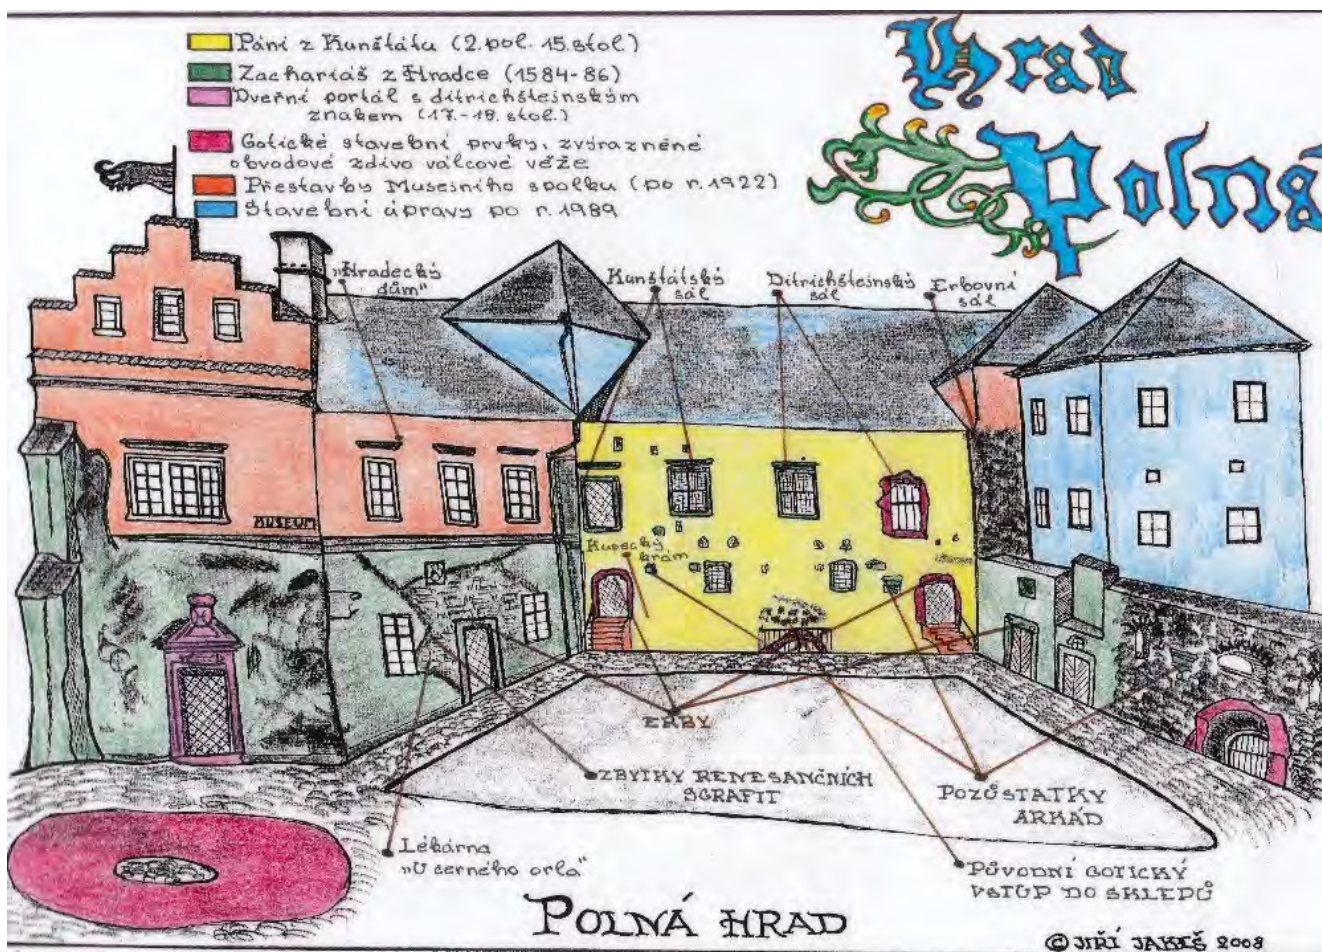 Páni z Kunštátu (2.pol. 15.stol.)
Zachariáš z Hradce (1584-86)
Dveřní portál s ditrichštejnským
znakem (17.-18. stol.)
Gotické stavební prvky, zvýrazněné
obvodové zdivo válcové věže
Přestavby Musejního spolku (po r.1922)
Stavební úpravy po r.1989
Hrad
Polná
„Hradecký
dům“
Kunštátský
sál
Ditrichštejnský
sál
Erbovní
sál
MUSEUM
Kupecký
krám
ERBY
ZBYTKY RENESANČNÍCH
SGRAFIT
POZŮSTATKY
ARKÁD
Lékárna
„U černého orla“
PŮVODNÍ GOTICKÝ
VSTUP DO SKLEPŮ
POLNÁ HRAD
© JIŘÍ JAKEŠ 2008